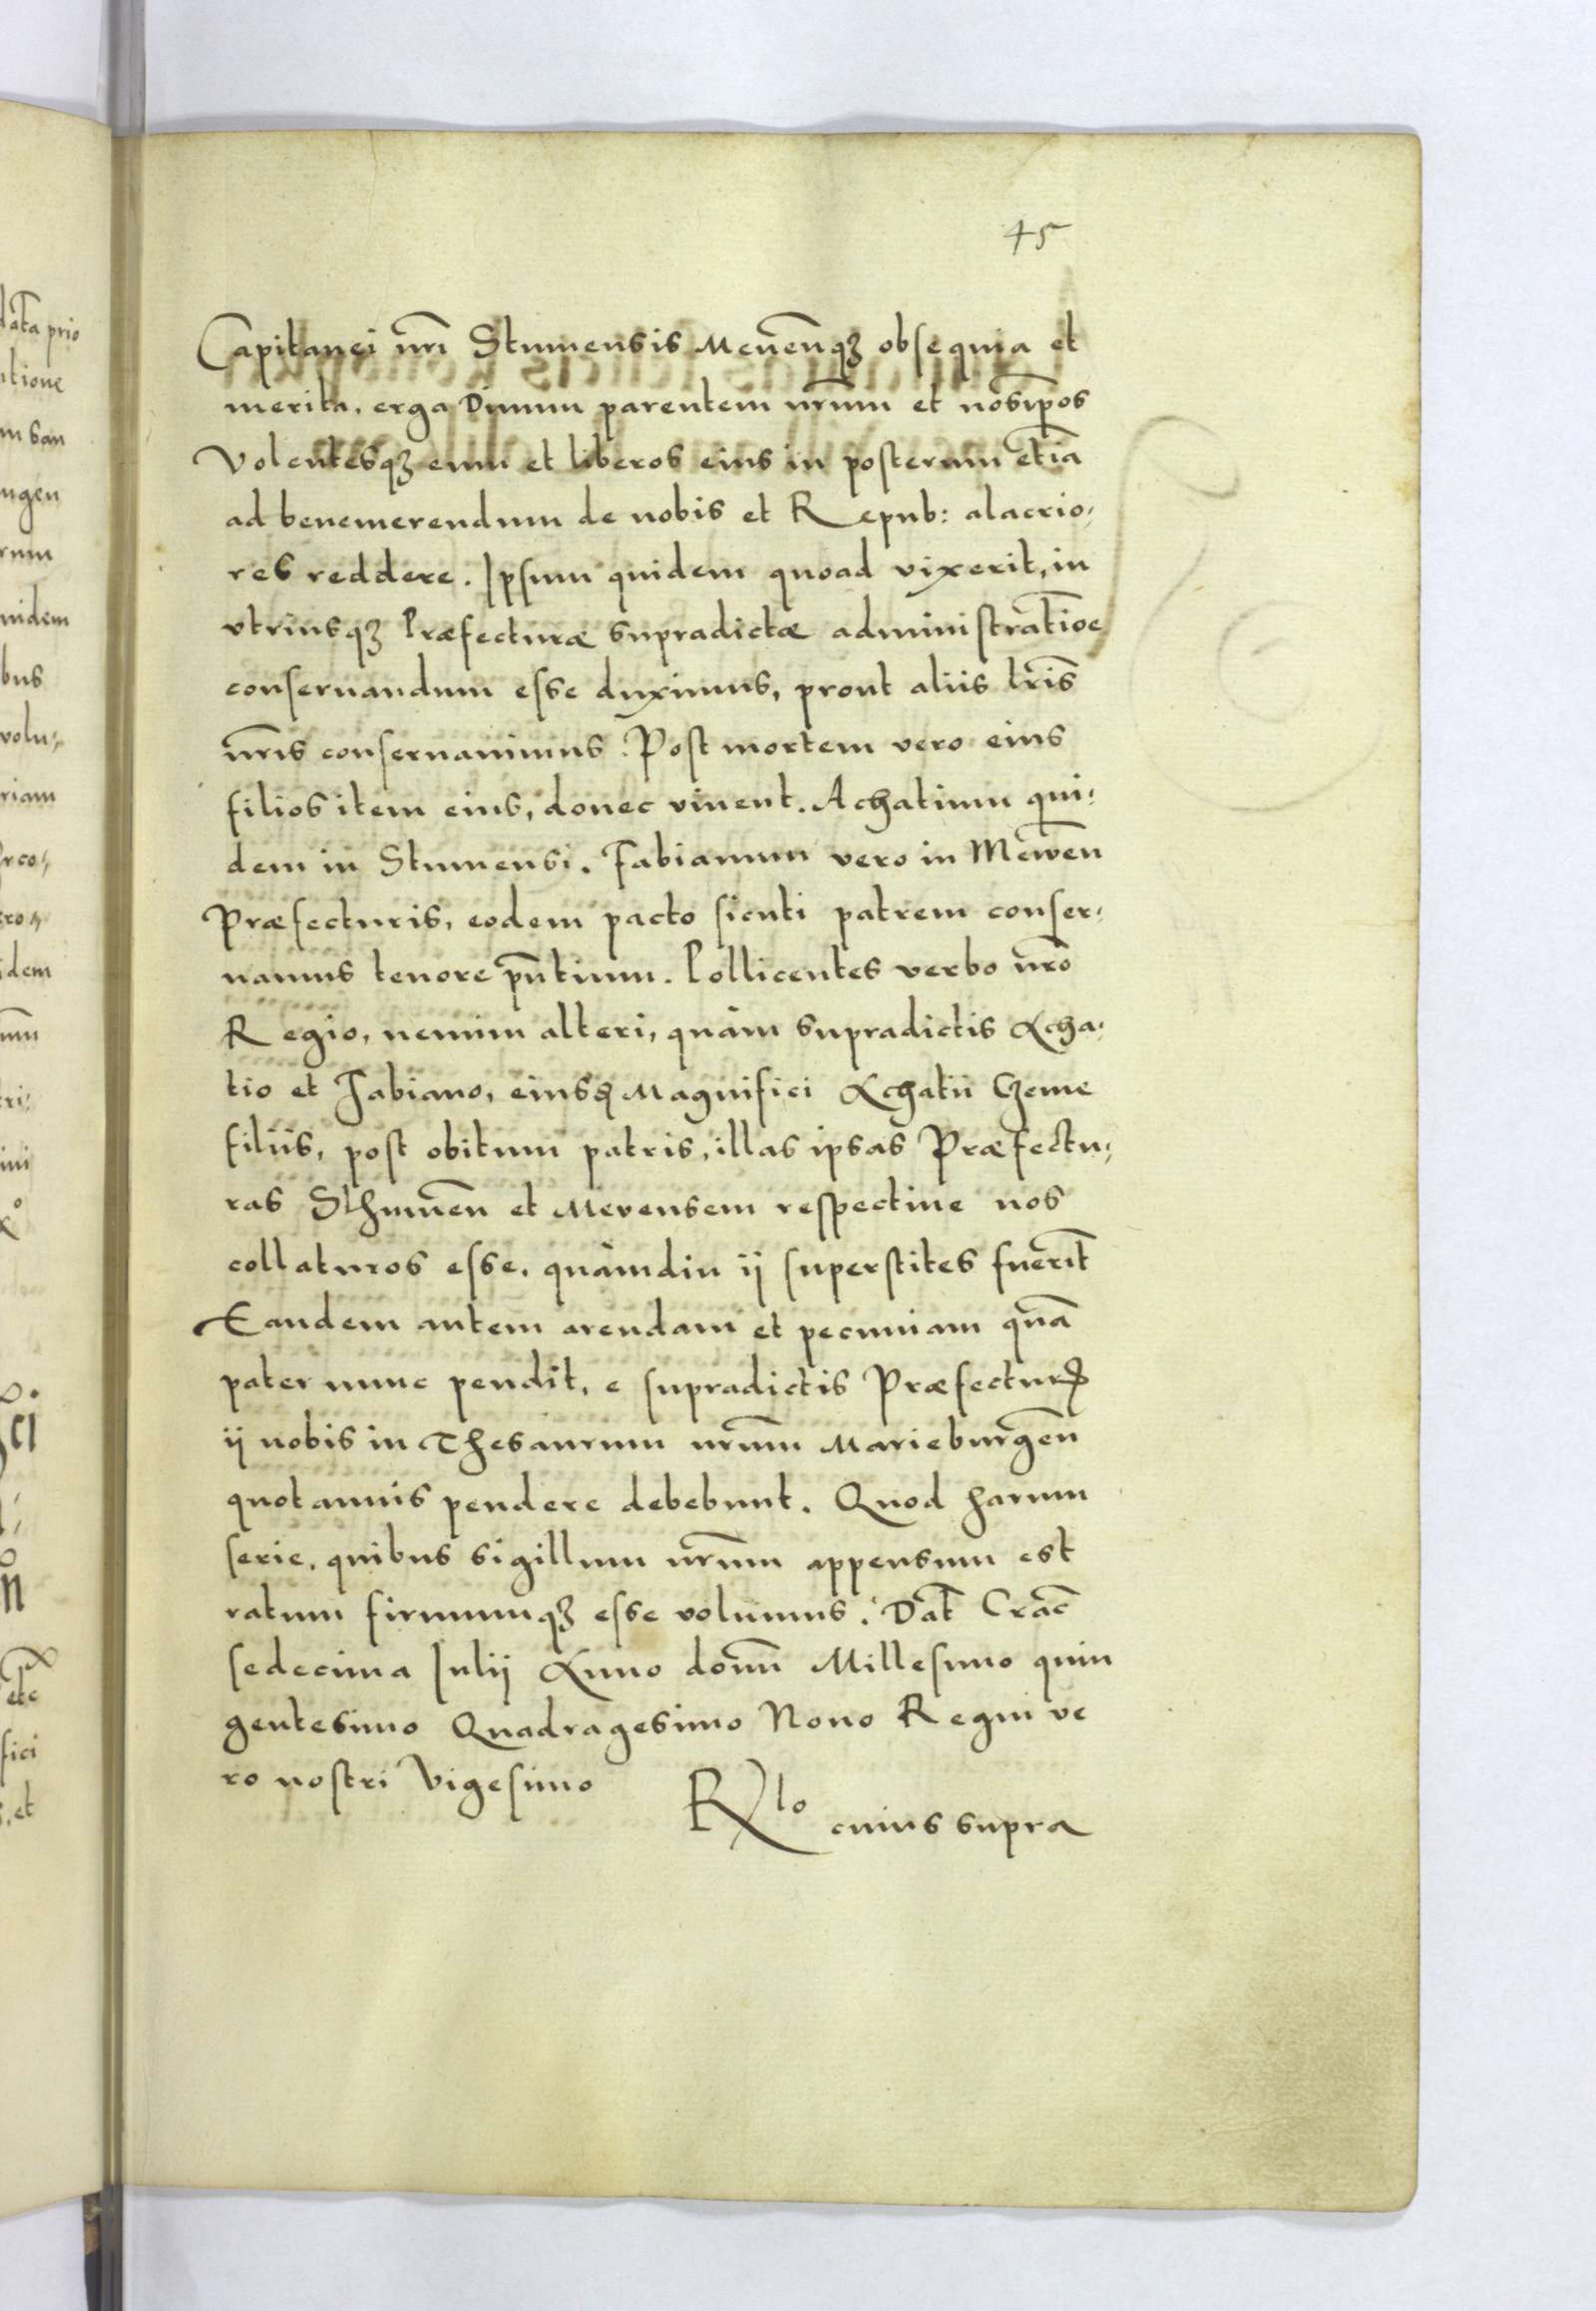 45
Capitanei nr̃i Stumensis Meuen̄qȝ obsequia et
merita, erga Diuum parentem nr̃um et nosip̃os
Volentesqȝ eum et liberos eius in posterum etiã
ad benemerendum de nobis et Repub: alacrio,
res reddere. Ipsum quidem quoad vixerit, in
vtriusqȝ Præfecturæ supradictæ administratioē
conseruandum esse duximus, prout aliis lr̃is
nr̃is conseruauimus. Post mortem vero eius
filios item eius, donec viuent. Achatium qui,
dem in Stumensi. Fabianum vero in Mewen̄
Præfecturis, eodem pacto sicuti patrem conser,
uamus tenore pñtium. Pollicentes verbo nr̃o
Regio, nemini alteri, quàm supradictis Acha,
tio et Fabiano, eiusꝗ Magnifici Achatii Czeme
filiis, post obitum patris, illas ipsas Præfectu,
ras Sthumen̄ et Mevensem respectiue nos
collaturos esse, quàmdiu ij superstites fuerĩt
Eandem autem arendam et pecuniam quã
pater nunc pendit, e supradictis Præfecturꝭ
ij nobis in Thesaurum nr̃um Marieburgen̄
quotannis pendere debebunt. Quod harum
serie, quibus sigillum nr̃um appensum est
ratum firmumqȝ esse volumus. Dat̃ Crac̃
sedecima Iulij Anno domñ Millesimo quin
gentesimo Quadragesimo Nono Regni ve
ro nostri Vigesimo
Rlo cuius supra